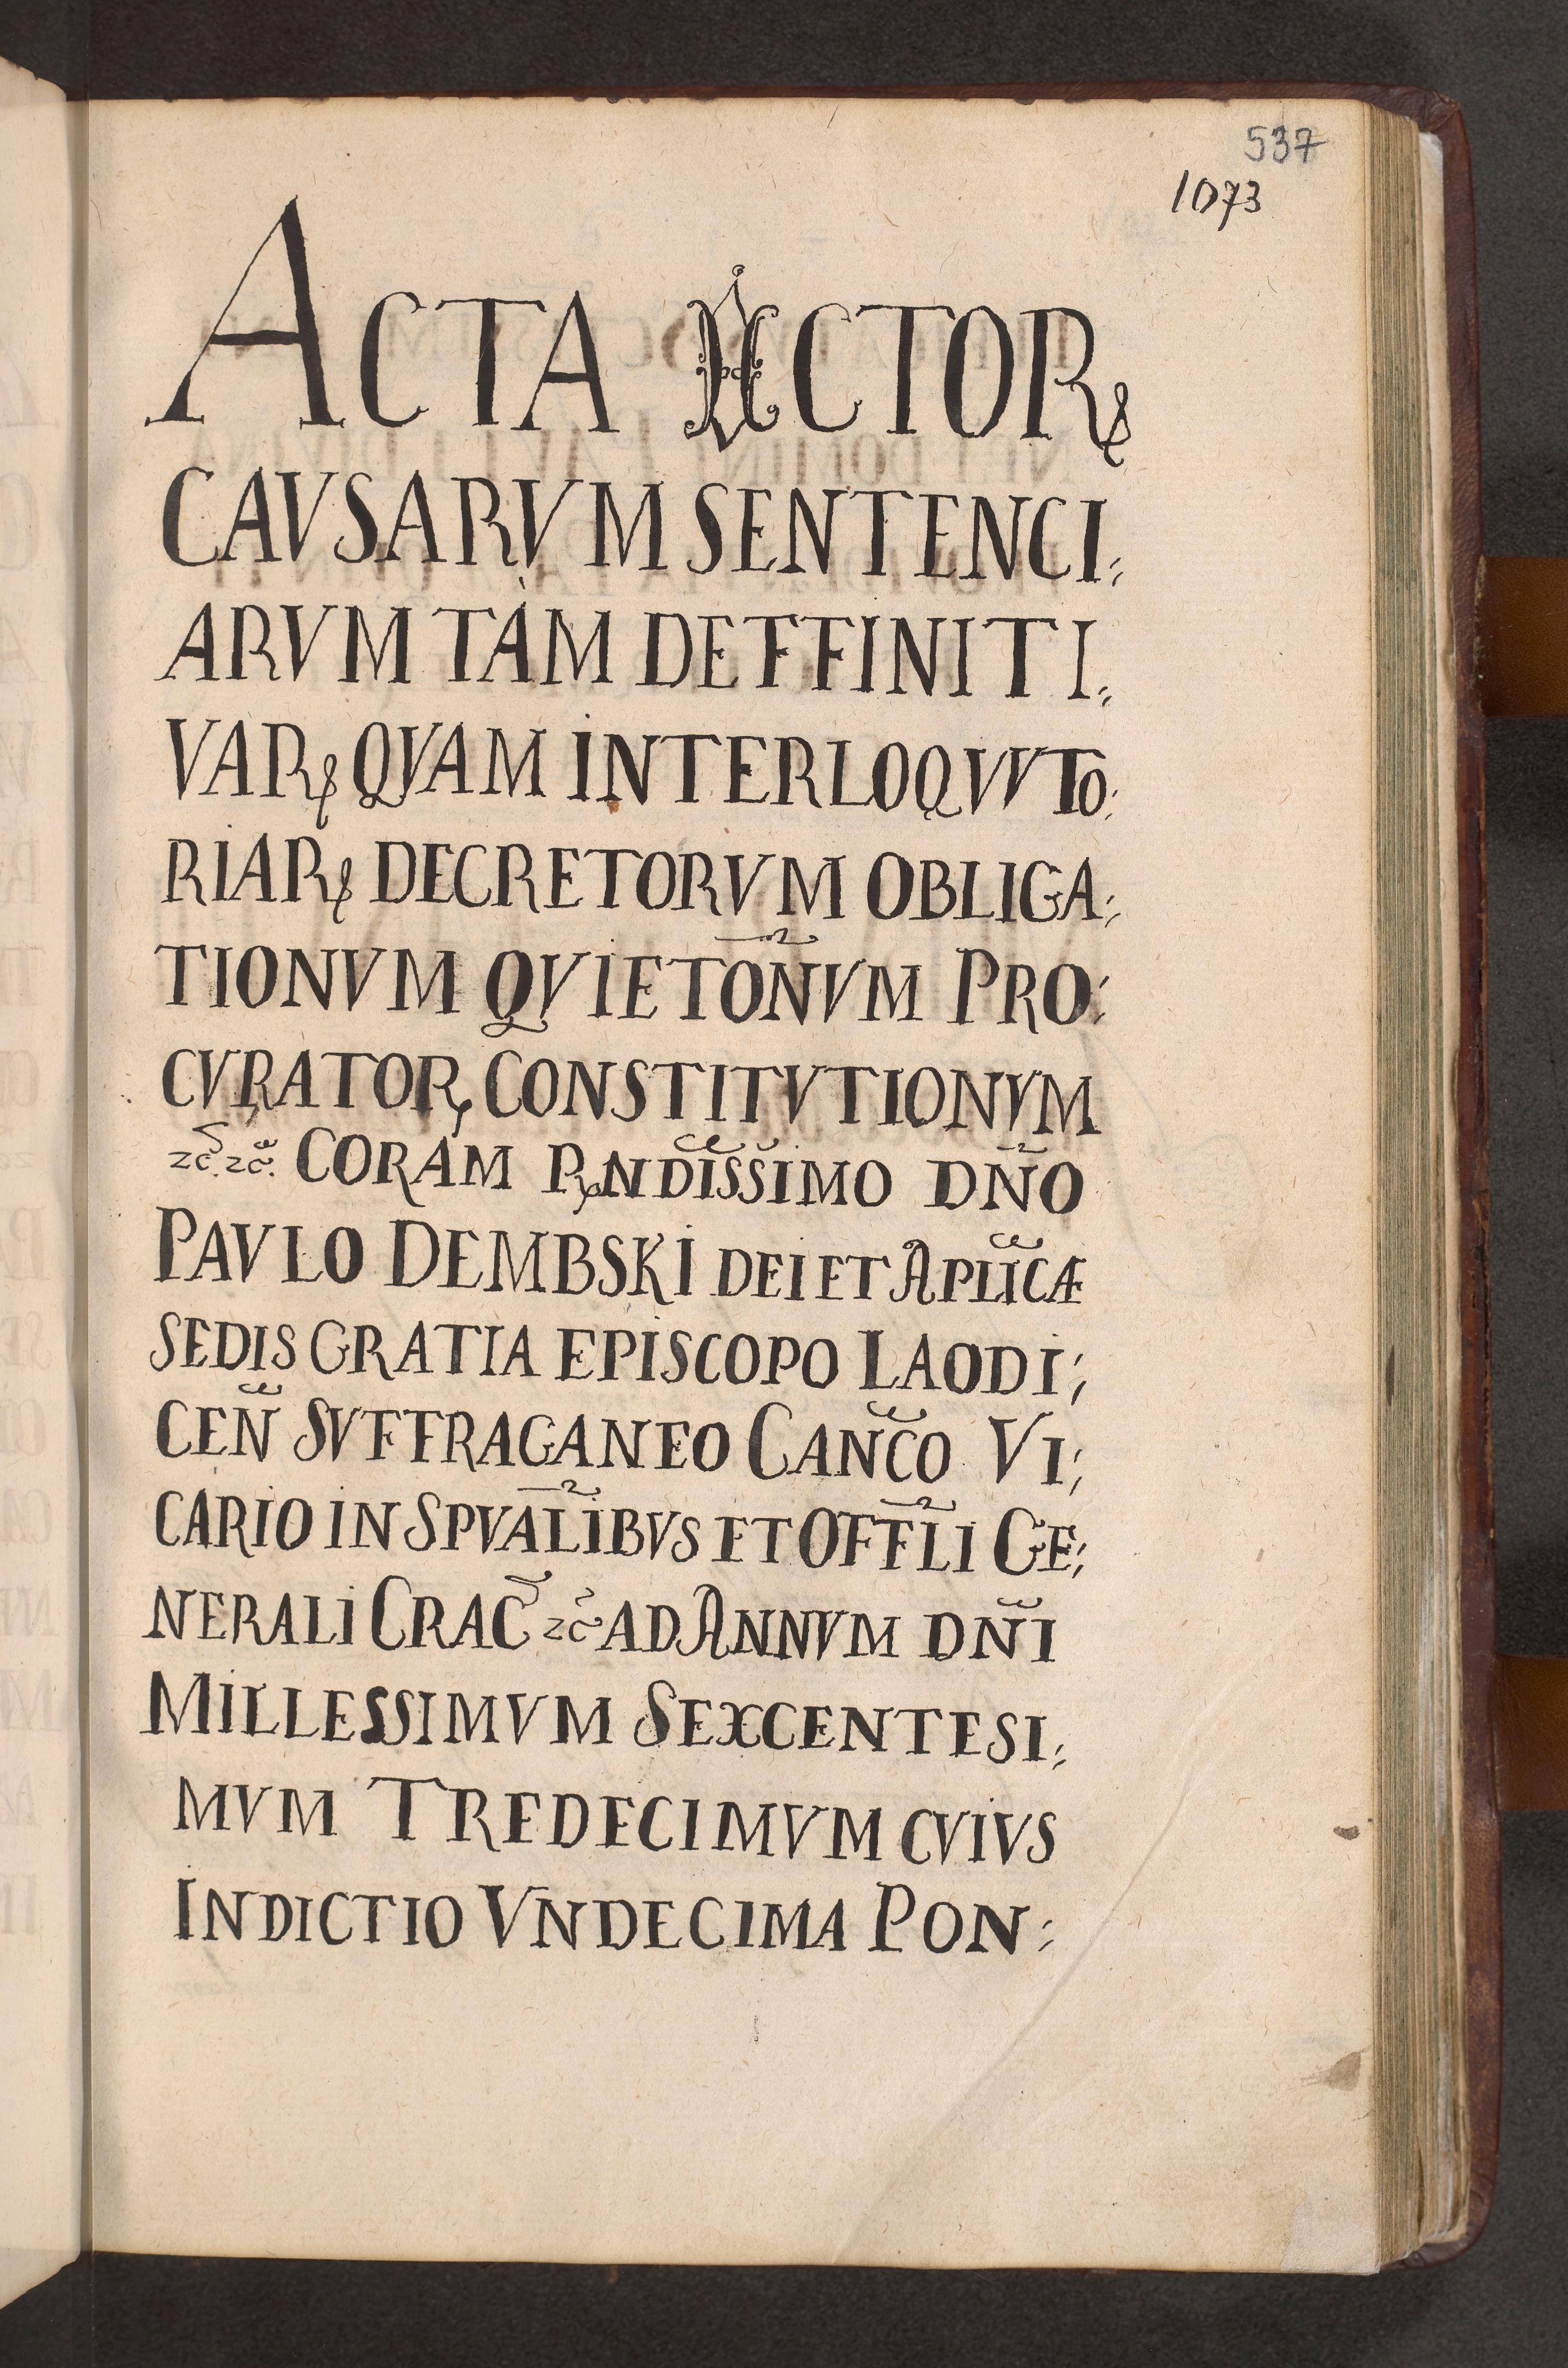 537
1073
ACTA ACTORꝝ
CAVSARVM SENTENCI;
ARVM TAM DEFFINITI;
VARꝝ QVAM INTERLOQVVTO;
RIARꝝ DECRETORVM OBLIGA;
TIONVM QVIETO͠NVM PRO;
CVRATORꝝ CONSTITVTIONVM
zc̃. zc̃. CORAM RṆDISSIMO DÑO
PAVLO DEMBSKI DEI ET APLI͠CÆ
SEDIS GRATIA EPISCOPO LAODI;
CEÑ SVFFRAGANEO CANC͠O VI;
CARIO IN SPVAL͠IBVS ET OFFL͠I GE;
NERALI CRAC̃ zc̃ AD ANNVM DÑI
MILLESSIMVM SEXCENTESI;
MVM TREDECIMVM CVIVS
INDICTIO VNDECIMA PON;